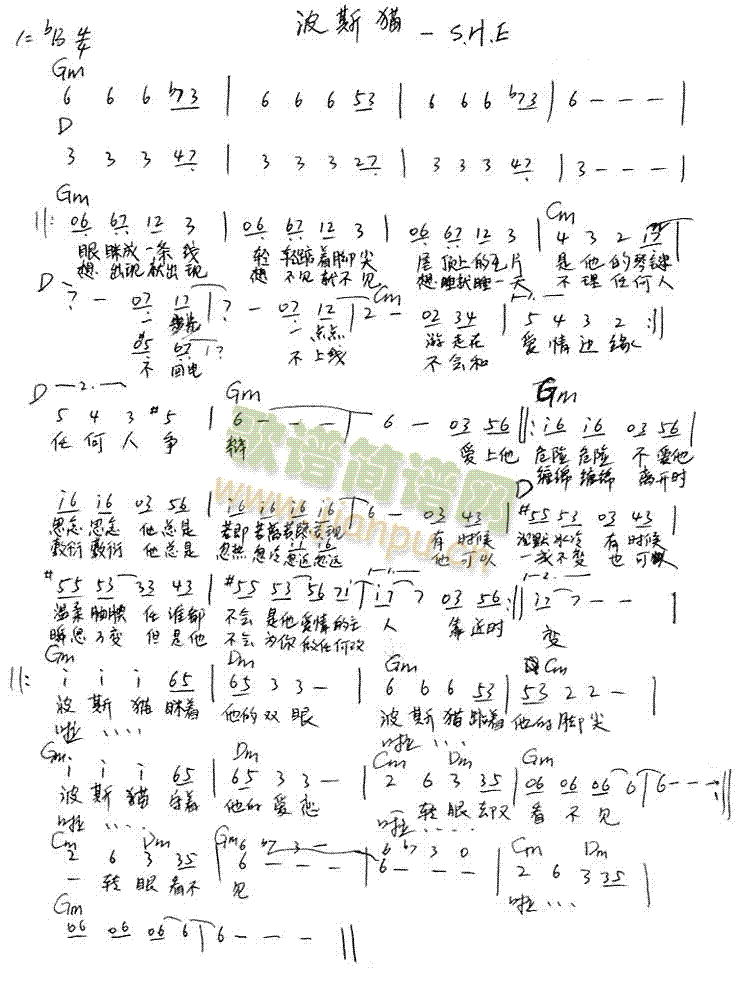 波斯猫 - S.H.E
1=bB 4/4
Gm
6 6 6 b7 3 | 6 6 6 5 3 | 6 6 6 b7 3 | 6 - - - |
D
3 3 3 4 7 | 3 3 3 2 7 | 3 3 3 4 7 | 3 - - - |
Gm Cm
||: 06 67 12 3 | 06 67 12 3 | 06 67 12 3 | 4 3 2 17 |
眼眯成一条线 轻轻踮着脚尖 屋顶上的瓦片 是他的琴键
想出现就出现 想不见就不见 想睡就睡一天 不理任何人
D Cm 1.
7 - 07 17 | 7 - 07 12 | 2 - 02 34 | 5 4 3 2 :||
一步步 一点点 游走在 爱情边缘
05 07 | 7
不回电 不上线 不会和
D 2. Gm Gm
5 4 3 #5 | 6 - - - | 6 - 03 56 ||: i6 i6 03 56 |
任何人争 辩 爱上他 危险危险 不爱他
缠绵缠绵 离开时
D
i6 i6 03 56 | i6 i6 i6 i6 | 6 - 03 43 | #55 53 03 43 |
思念思念 他总是 若即若离若隐若现 有时候 沉默冰冷 有时候
敷衍敷衍 他总是 忽热忽冷忽近忽远 他可以 一成不变 也可以
#55 53 33 43 | #55 53 56 7i | i7 7 03 56 :|| i7 7 - - |
温柔腼腆 任谁都 不会是他爱情的主 人 靠近时 变
瞬息万变 但是他 不会为你做任何改
Gm Dm Gm Cm
||: i i i 65 | 65 3 3 - | 6 6 6 53 | 53 2 2 - |
波斯猫眯着 他的双眼 波斯猫踮着 他的脚尖
啦.... 啦....
Gm Dm Cm Dm Gm
i i i 65 | 65 3 3 - | 2 6 3 35 | 06 06 06 6 | 6 - - - :||
波斯猫守着 他的爱恋 一转眼却又 看不见
啦.... 啦....
Cm Dm Gm 6 b7 3 - 6 b7 3 0 Cm Dm
2 6 3 35 | 6 - - - | 6 - - - | 2 6 3 35 |
一转眼看不 见 啦....
Gm
06 06 06 6 | 6 - - - ||
歌谱简谱网
www.jianpu.cn